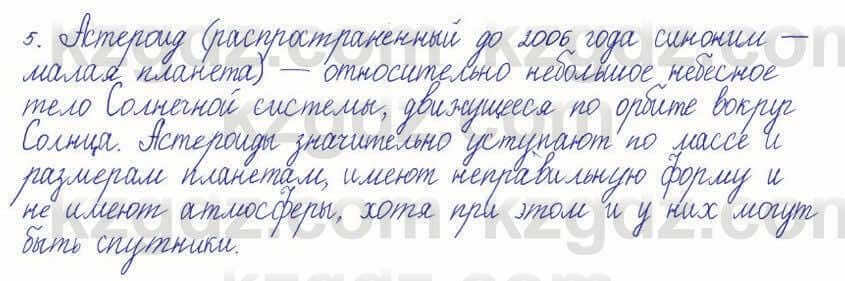 5. Астероид (распространённый до 2006 года синоним —
малая планета) — относительно небольшое небесное
тело Солнечной системы, движущееся по орбите вокруг
Солнца. Астероиды значительно уступают по массе и
размерам планетам, имеют неправильную форму и
не имеют атмосферы, хотя при этом и у них могут
быть спутники.